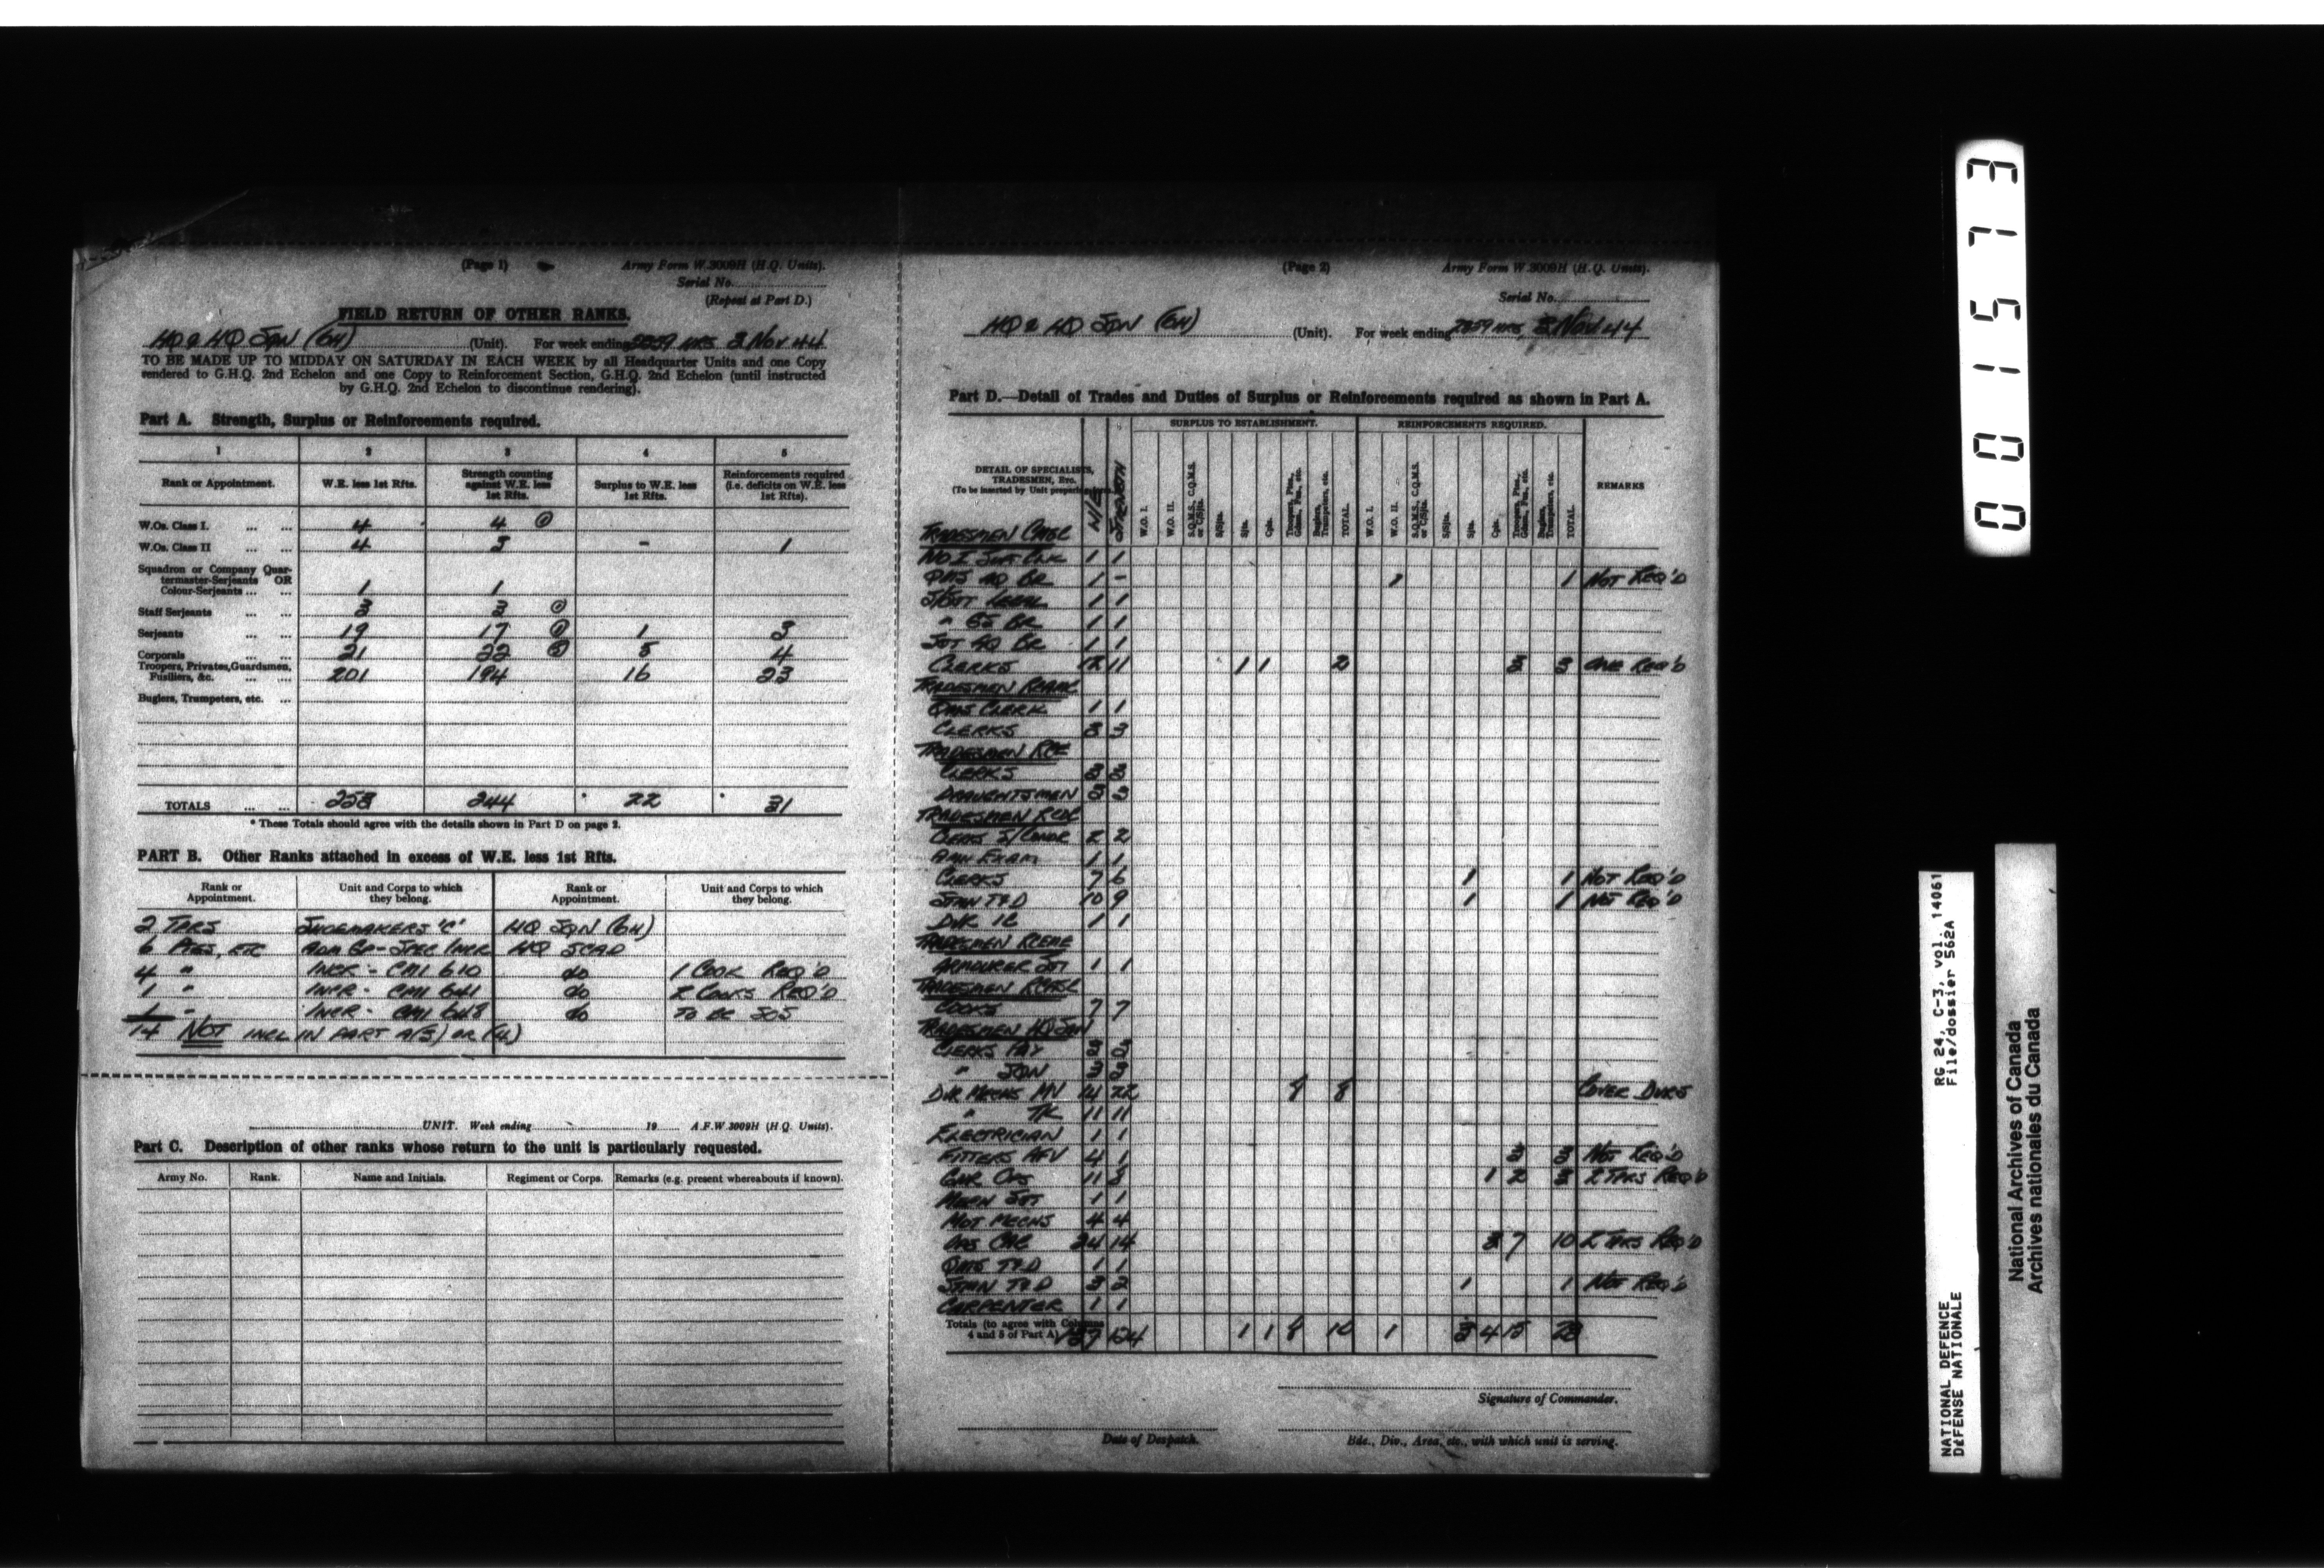 (Page 1) Army Form W.3009H (H.Q. Units).
Serial No.
(Repeat at Part D.)
FIELD RETURN OF OTHER RANKS.
HQ & HQ SQN (GH) (Unit). For week ending 2359 HRS 3 NOV 44
TO BE MADE UP TO MIDDAY ON SATURDAY IN EACH WEEK by all Headquarter Units and one Copy
rendered to G.H.Q. 2nd Echelon and one Copy to Reinforcement Section, G.H.Q. 2nd Echelon (until instructed
by G.H.Q. 2nd Echelon to discontinue rendering).
Part A. Strength, Surplus or Reinforcements required.
1 2 3 4 5
Rank or Appointment. W.E. less 1st Rfts. Strength counting against W.E. less 1st Rfts. Surplus to W.E. less 1st Rfts. Reinforcements required (i.e. deficits on W.E. less 1st Rfts).
W.Os. Class I. ... ... 4 4 ①
W.Os. Class II ... ... 4 3 - 1
Squadron or Company Quar-
termaster-Serjeants OR
Colour-Serjeants ... ... 1 1
Staff Serjeants ... ... 3 3 ①
Serjeants ... ... 19 17 ① 1 3
Corporals ... ... 21 22 5 4
Troopers, Privates, Guardsmen,
Fusiliers, &c. ... ... 201 194 16 23
Buglers, Trumpeters, etc. ...
TOTALS ... ... 253 244 * 22 * 31
* These Totals should agree with the details shown in Part D on page 2.
PART B. Other Ranks attached in excess of W.E. less 1st Rfts.
Rank or Appointment. Unit and Corps to which they belong. Rank or Appointment. Unit and Corps to which they belong.
2 TPRS SHOEMAKERS 'C' HQ SQN (GH)
6 PTES, ETC ADM GP - SPEC INCR HQ SCAD
4 " INCR - CM1 610 do 1 COOK REQ'D
1 " INCR - CM1 641 do 2 COOKS REQ'D
1 " INCR - CM1 648 do TO BE SOS
14 NOT INCL IN PART A(3) OR (4)
UNIT. Week ending 19 A.F.W 3009H (H.Q. Units).
Part C. Description of other ranks whose return to the unit is particularly requested.
Army No. Rank. Name and Initials. Regiment or Corps. Remarks (e.g. present whereabouts if known).
(Page 2) Army Form W.3009H (H.Q. Units).
Serial No.
HQ & HQ SQN (GH) (Unit). For week ending 2359 HRS, 3 NOV 44
Part D.—Detail of Trades and Duties of Surplus or Reinforcements required as shown in Part A.
SURPLUS TO ESTABLISHMENT. REINFORCEMENTS REQUIRED.
DETAIL OF SPECIALISTS,
TRADESMEN, Etc.
(To be inserted by Unit
W/E STRENGTH W.O. I. W.O. II. S.Q.M.S., C.Q.M.S. or C/Sjts. S/Sjts. Sjts. Cpls. Troopers, Ptes., Gdsmn., Fus., etc. Buglers, Trumpeters, etc. TOTAL. W.O. I. W.O. II. S.Q.M.S., C.Q.M.S. or C/Sjts. S/Sjts. Sjts. Cpls. Troopers, Ptes., Gdsmn., Fus., etc. Buglers, Trumpeters, etc. TOTAL. REMARKS
TRADESMEN
1 1
QMS AQ BR 1 - 1 1 NOT REQ'D
LEGAL 1 1
" GS BR 1 1
SGT AQ BR 1 1
CLERKS 12 11 1 1 2 3 3 ONE REQ'D
TRADESMEN
QMS CLERK 1 1
CLERKS 3 3
TRADESMEN RCE
CLERKS 3 3
DRAUGHTSMEN 3 3
TRADESMEN RCOC
CLERKS S/CONDR 2 2
AMN EXAM 1 1
CLERKS 7 6 1 1 NOT REQ'D
STMN T&D 10 9 1 1 NOT REQ'D
DVR IC 1 1
TRADESMEN RCEME
ARMOURER SGT 1 1
TRADESMEN RCASC
COOKS 7 7
TRADESMEN HQ SQN
CLERKS PAY 2 2
" SQN 3 3
DVR MECHS MV 14 22 8 8 COVER DVRS
" TK 11 11
ELECTRICIAN 1 1
FITTERS AFV 4 1 3 3 NOT REQ'D
GNR OPS 11 8 1 2 3 2 TPRS REQ'D
1 1
MOT MECHS 4 4
OPS 24 14 3 7 10 2 TPRS REQ'D
QMS T&D 1 1
STMN T&D 3 2 1 1 NOT REQ'D
CARPENTER 1 1
Totals (to agree with Columns
4 and 5 of Part A) 137 124 1 1 8 10 1 3 4 15 23
Signature of Commander.
Date of Despatch. Bde., Div., Area, etc., with which unit is serving.
001573
NATIONAL DEFENCE RG 24, C-3, vol. 14061
DÉFENSE NATIONALE File/dossier 562A
National Archives of Canada
Archives nationales du Canada